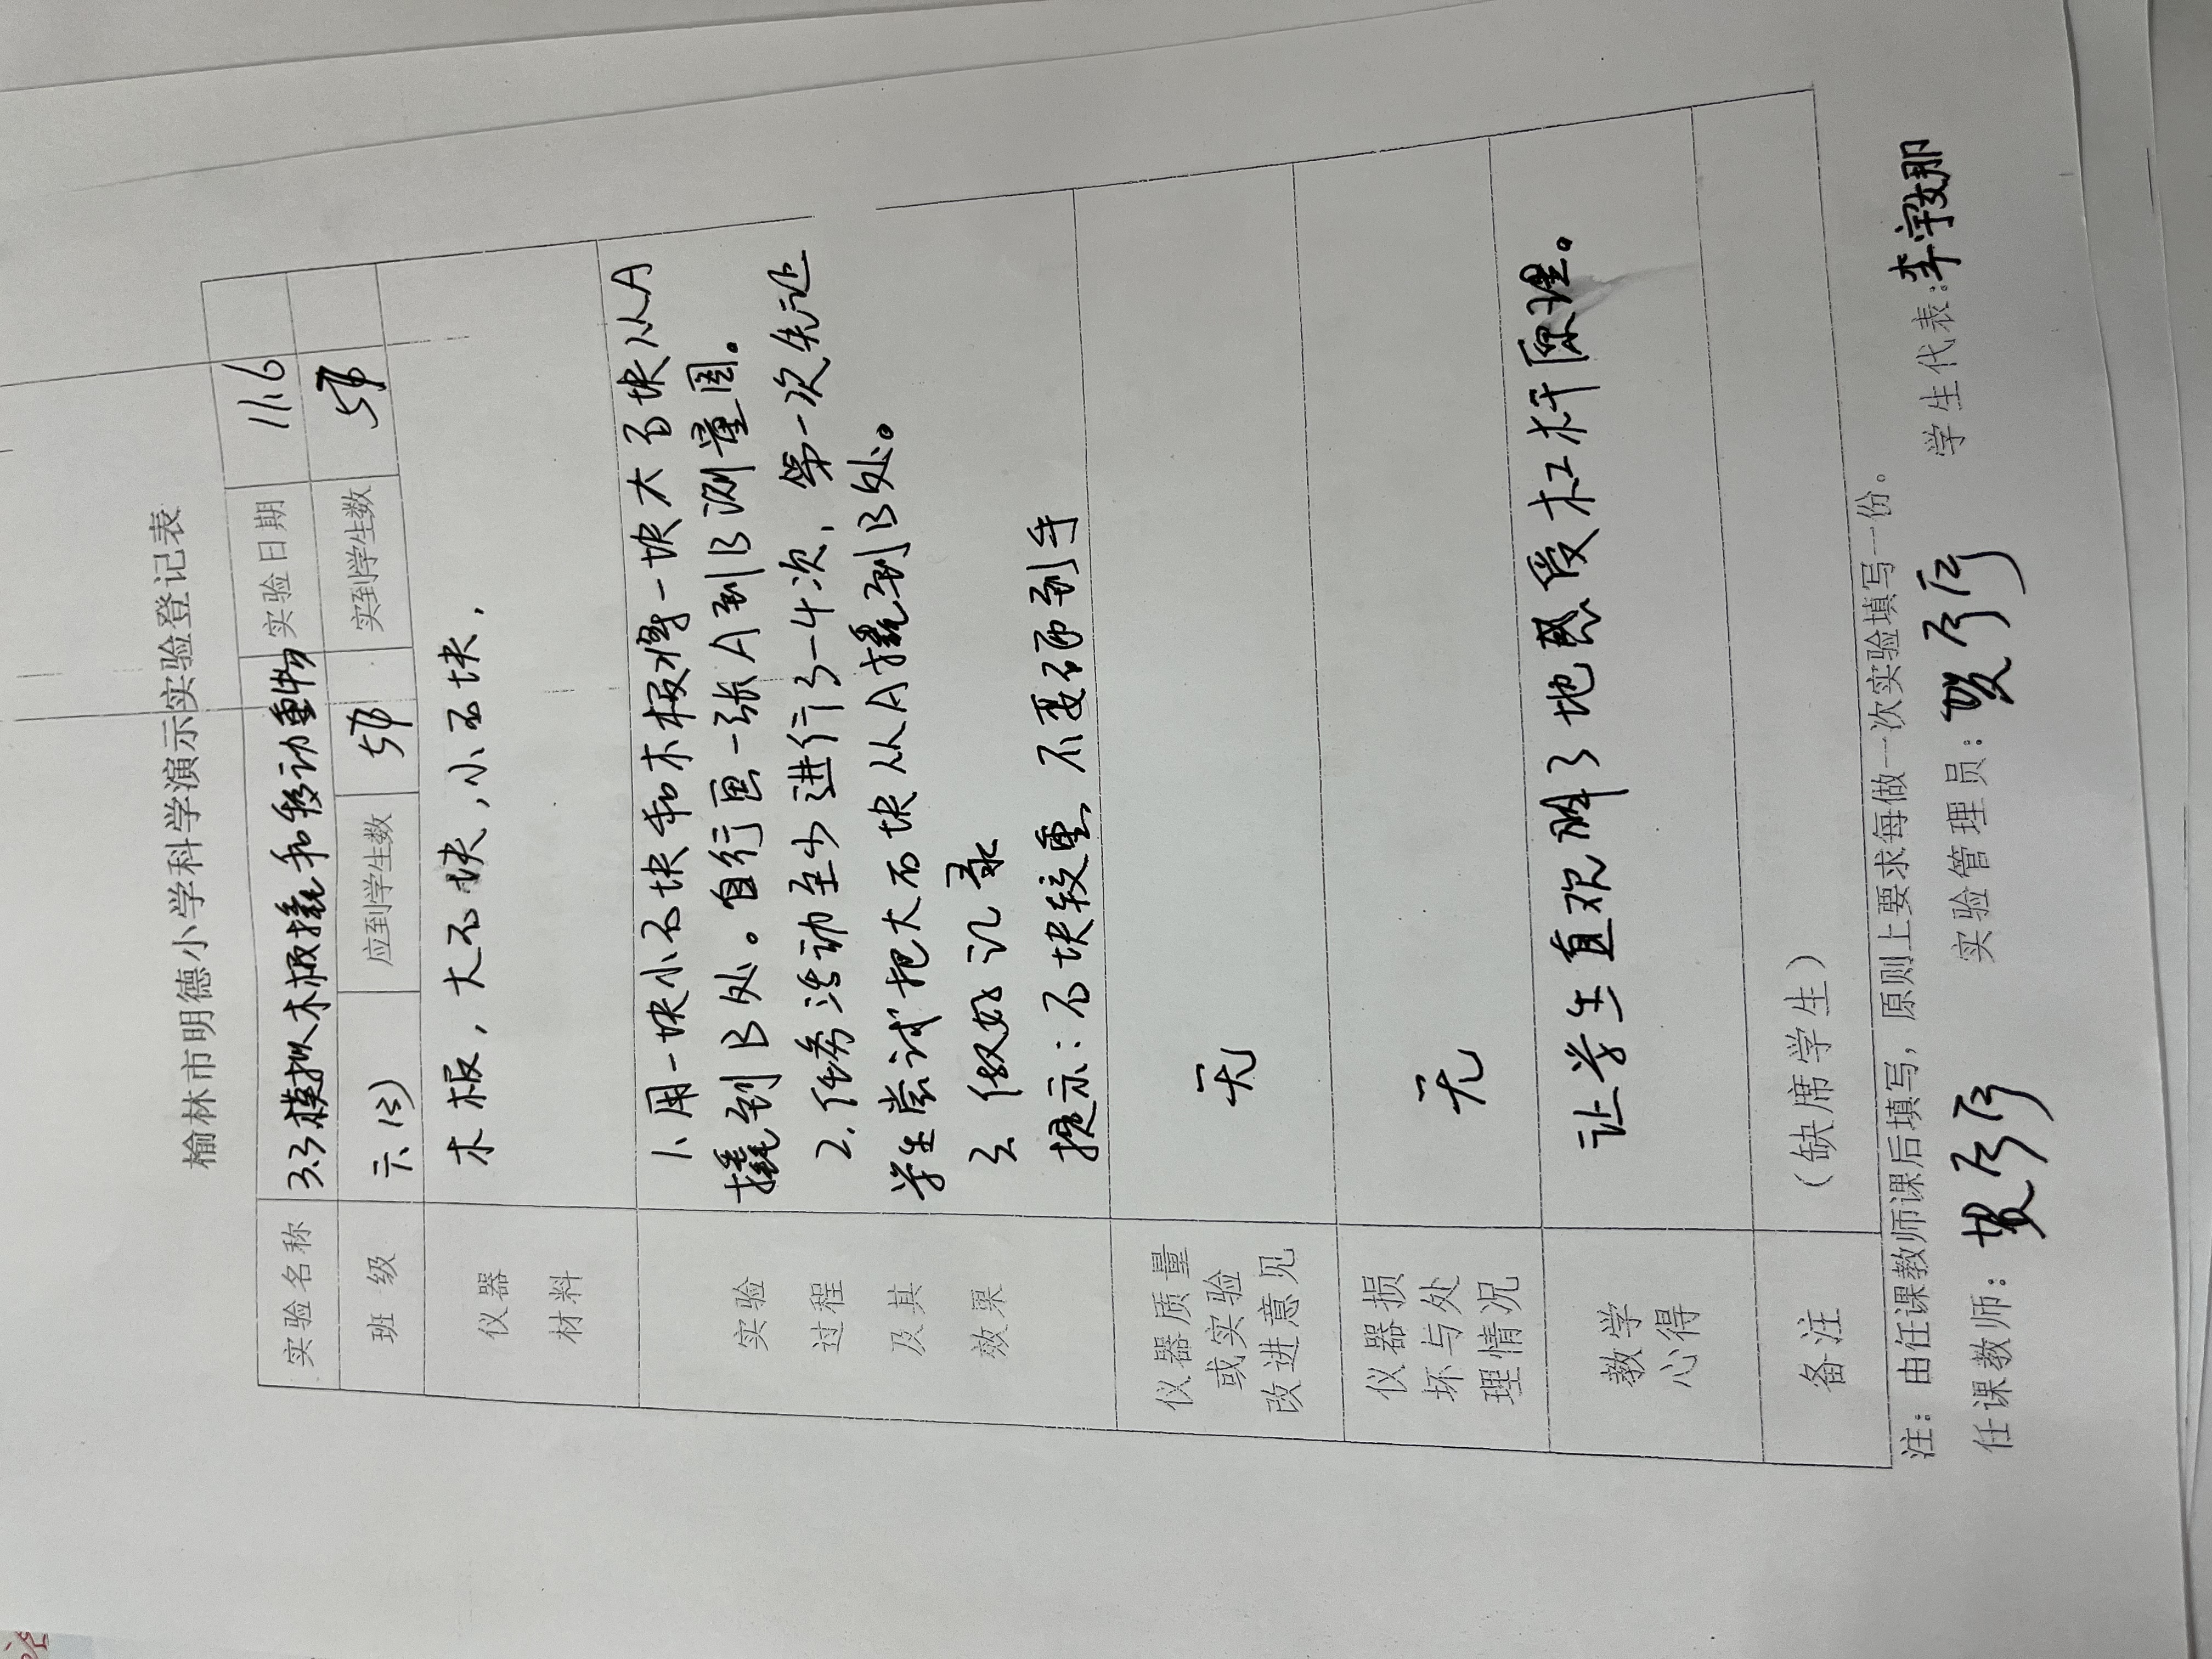 榆林市明德小学科学演示实验登记表
实验名称 3.3模拟木板撬和移动重物 实验日期 11.6
班 级 六(三) 应到学生数 实到学生数
仪器 材料 木板，大石块，小石块，
实验 过程 及其 效果
1、用一块小石块和木板将一块大石块从A
撬到B处。自行画一张A到B测量图。
2.任务活动至少进行3-4次，第一次先让
学生尝试把大石块从A撬到B处。
3 做好记录
提示：石块较重 不要砸到手
仪器质量 或实验 改进意见 无
仪器损 坏与处 理情况 无
教学 心得 让学生直观了地感受杠杆原理。
备注 （缺席学生）
注：由任课教师课后填写，原则上要求每做一次实验填写一份。
任课教师： 实验管理员： 学生代表：李